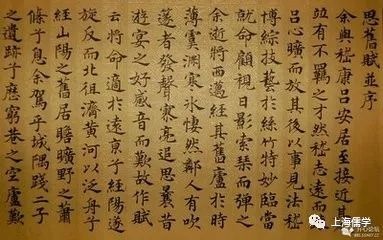 思舊賦並序
余與嵇康吕安居至接近
並有不羈之才然嵇志遠而
吕心曠而放其後以事見法嵇
博綜技藝於絲竹特妙臨當
就命顧視日影索琴而彈之
余逝將西邁經其舊廬於時
薄虞淵寒氷悽然鄰人有吹
篴者發聲寥亮追思曩昔
遊宴之好感音而歎故作賦
云將命適於遠京兮經陽遂
旋反而北徂濟黄河以泛舟兮
經山陽之舊居瞻曠野之蕭
條兮息余駕乎城隅踐二子
之遺跡兮歷窮巷之空廬歎
上海儒学